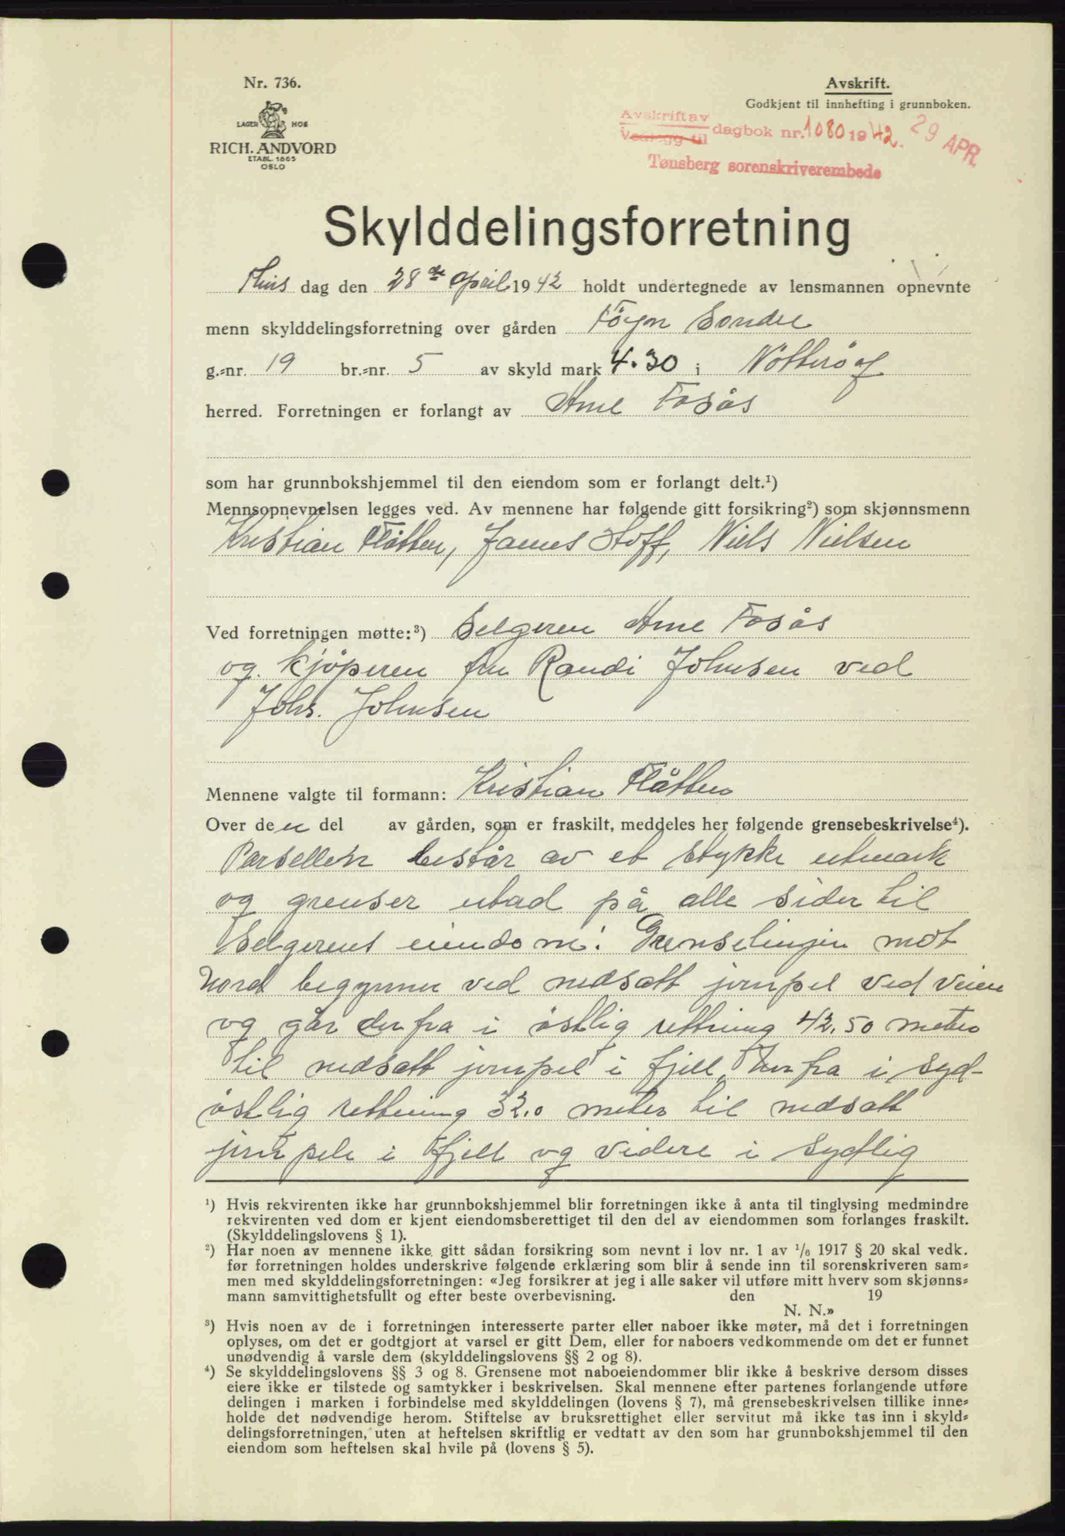 Nr. 736.
LAGER HOS
RICH. ANDVORD
ETABL. 1865
OSLO
Avskrift.
Godkjent til innhefting i grunnboken.
Avskrift av
Vedlegg til dagbok nr. 1080 1942. 29 APR.
Tønsberg sorenskriverembede
Skylddelingsforretning
dag den 28de April 1942 holdt undertegnede av lensmannen opnevnte
menn skylddelingsforretning over gården Föyn Söndre
g.=nr. 19 br.=nr. 5 av skyld mark 4.30 i Nötteröy
herred. Forretningen er forlangt av Arne Fosås
som har grunnbokshjemmel til den eiendom som er forlangt delt.¹)
Mennsopnevnelsen legges ved. Av mennene har følgende gitt forsikring²) som skjønnsmenn
Kristian Flåtten, James Hoff, Niels Nielsen
Ved forretningen møtte:³) Selgeren Arne Fosås
og kjöperen fru Randi Johnsen ved
Johs. Johnsen
Mennene valgte til formann: Kristian Flåtten
Over den del av gården, som er fraskilt, meddeles her følgende grensebeskrivelse⁴).
Parsellen består av et stykke utmark
og grenser utad på alle sider til
Selgerens eiendom. Grenselinjen mot
Nord begynner ved nedsatt jernpel ved veien
og går derfra i östlig rettning 42.50 meter
til nedsatt jernpel i fjell, derfra i syd-
östlig rettning 32.0 meter til nedsatt
jernpele i fjell og videre i sydlig
¹) Hvis rekvirenten ikke har grunnbokshjemmel blir forretningen ikke å anta til tinglysing medmindre
rekvirenten ved dom er kjent eiendomsberettiget til den del av eiendommen som forlanges fraskilt.
(Skylddelingslovens § 1).
²) Har noen av mennene ikke gitt sådan forsikring som nevnt i lov nr. 1 av 1/6 1917 § 20 skal vedk.
før forretningen holdes underskrive følgende erklæring som blir å sende inn til sorenskriveren sam=
men med skylddelingsforretningen: «Jeg forsikrer at jeg i alle saker vil utføre mitt hverv som skjønns=
mann samvittighetsfullt og efter beste overbevisning. den 19
N. N.»
³) Hvis noen av de i forretningen interesserte parter eller naboer ikke møter, må det i forretningen
oplyses, om det er godtgjort at varsel er gitt Dem, eller for naboers vedkommende om det er funnet
unødvendig å varsle dem (skylddelingslovens §§ 2 og 8).
⁴) Se skylddelingslovens §§ 3 og 8. Grensene mot naboeiendommer blir ikke å beskrive dersom disses
eiere ikke er tilstede og samtykker i beskrivelsen. Skal mennene efter partenes forlangende utføre
delingen i marken i forbindelse med skylddelingen (lovens § 7), må grensebeskrivelsen tillike inne=
holde det nødvendige herom. Stiftelse av bruksrettighet eller servitut må ikke tas inn i skyld=
delingsforretningen, uten at heftelsen skriftlig er vedtatt av den som har grunnbokshjemmel til den
eiendom som heftelsen skal hvile på (lovens § 5).